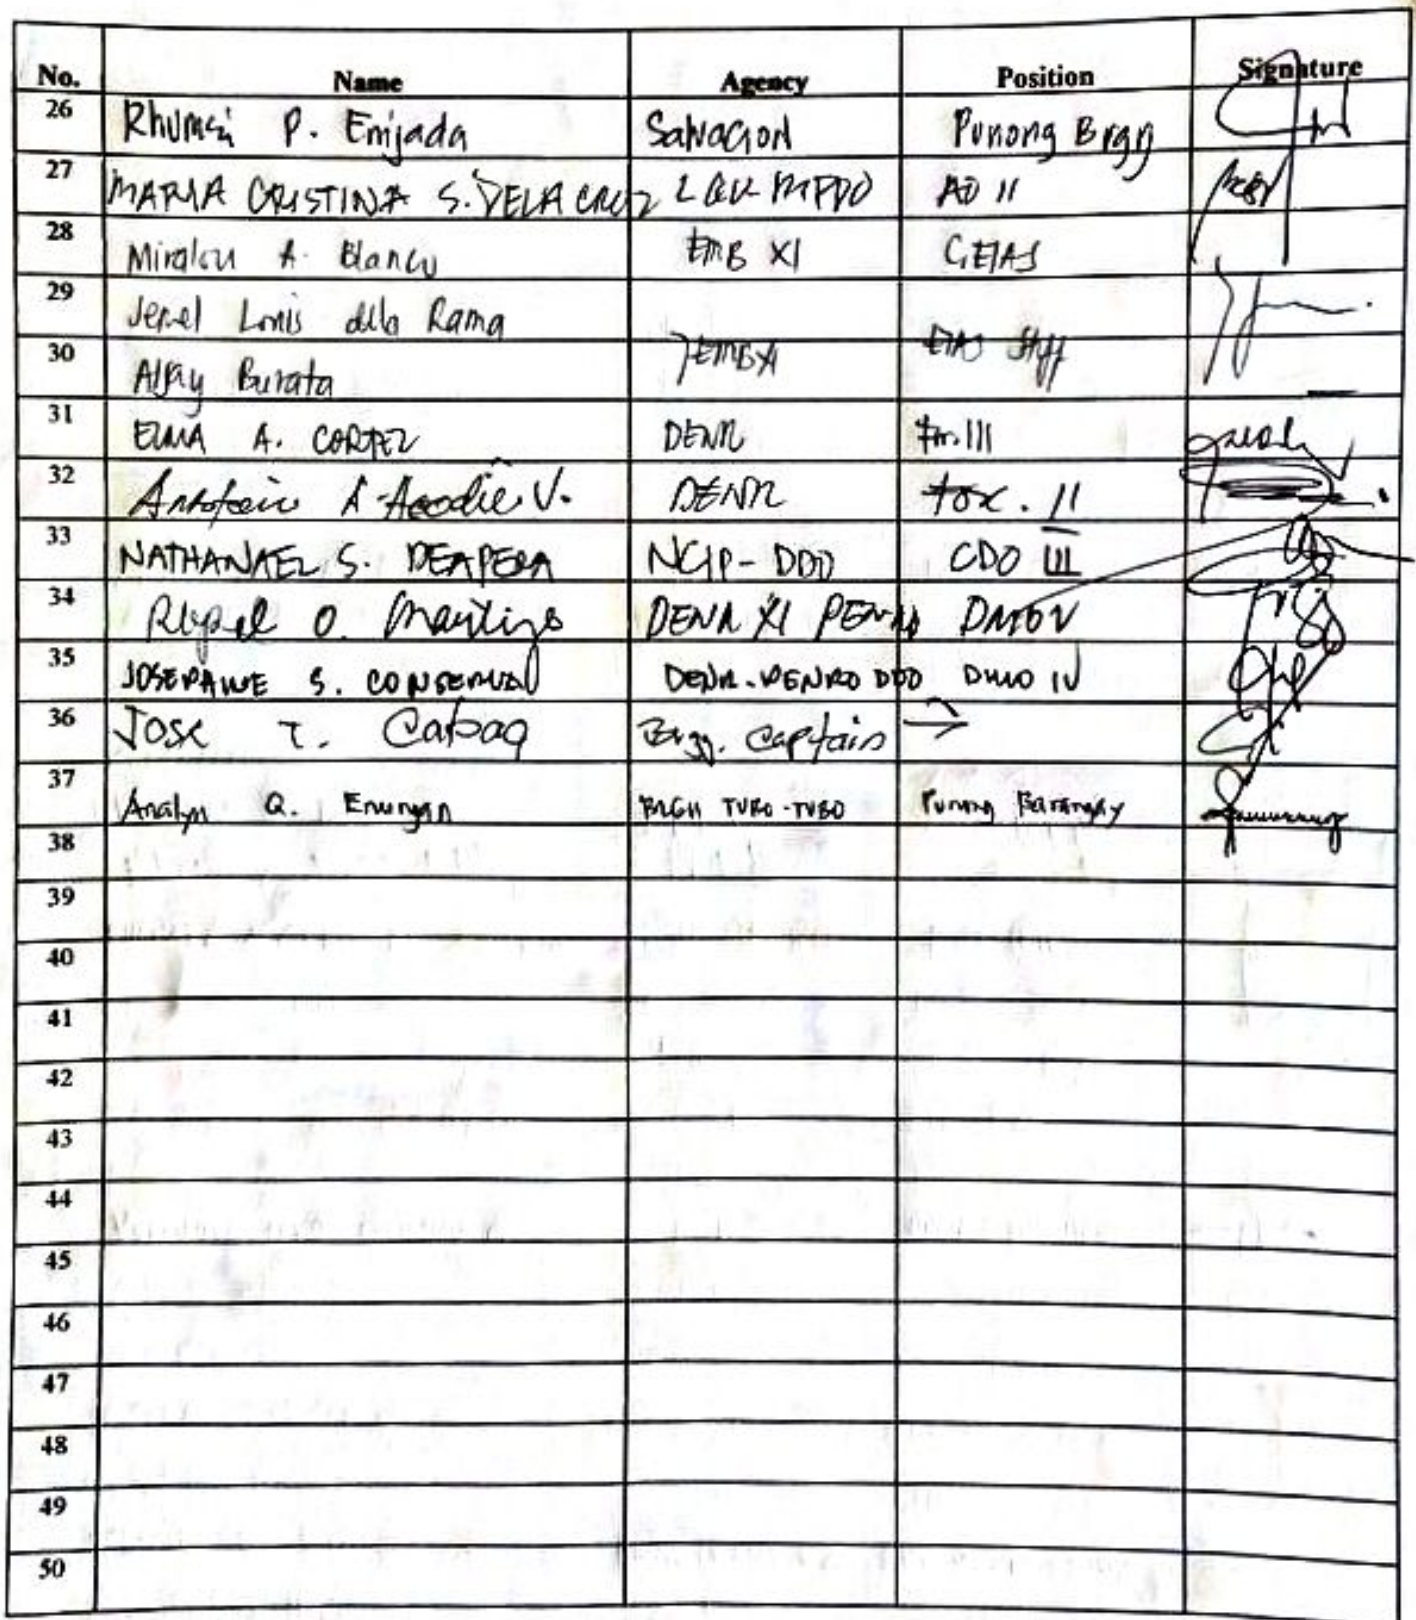 No. Name Agency Position Signature
26 P. Enijada Salvacion Punong Brgy
27 MARIA CRISTINA S. DELA CRUZ LGU MPDO AO II
28 Miralou A. Blanco EMB XI CEIAS
29 Jerel Louis dela Rama
30 Burata EMBXI EIAS Staff
31 ELMA A. CORTEZ DENR Fm. III
32 V. DENR II
33 NATHANAEL S. DEAPERA NCIP-DDO CDO III
34 O. DENR XI PENRO DMO V
35 JOSEPHINE S. DENR-PENRO DDO DMO IV
36 Jose T. Cabag Brgy. Captain →
37 Analyn Q. BRGY TUBO-TUBO Punong Barangay
38
39
40
41
42
43
44
45
46
47
48
49
50